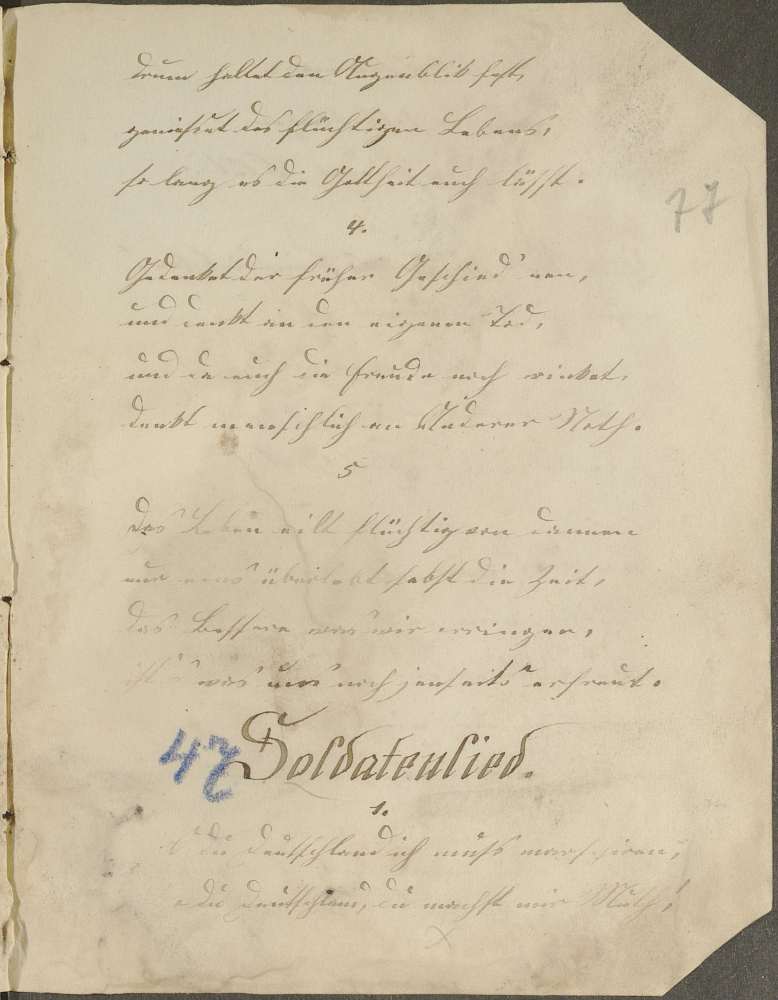 drum haltet den Augenblik fest,
genießet des flüchtigen Lebens,
so lang es die Gottheit euch läßt.
77
4.
Gedenket der früher Geschied'nen,
und denkt an den eigenen Tod,
und da euch die Freude noch winket,
denkt menschlich an Anderer Noth.
5
Das Leben eilt flüchtig von dannen
nur eins überlebt selbst die Zeit,
das Bessere was wir erringen,
ist's was uns noch jenseits erfreut.
47
Soldatenlied.
1.
du Deutschland ich muß marschiren,
du Deutschland, du machst mir Muth!